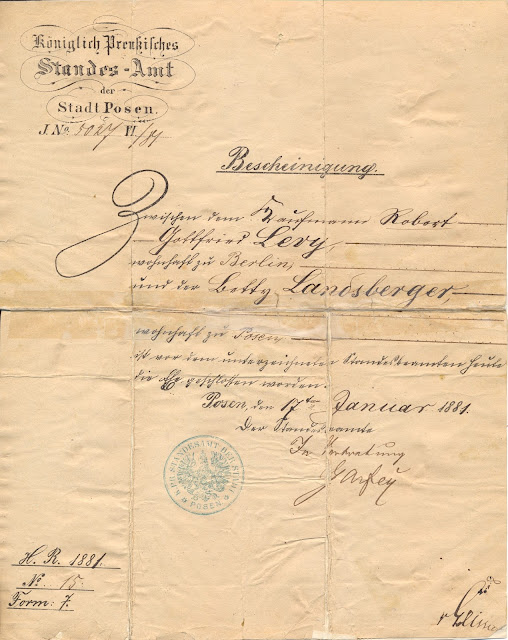 Königlich Preußisches
Standes-Amt
der
Stadt Posen.
J. No. 5027 VI/81
Bescheinigung.
Zwischen dem Kaufmann Robert
Gottfried Levy,
wohnhaft zu Berlin,
und der Betty Landsberger
wohnhaft zu Posen
ist vor dem unterzeichneten Standesbeamten heute
die Ehe geschlossen worden.
Posen, den 17ten Januar 1881.
Der Standesbeamte
In Vertretung
POSEN
H. R. 1881.
No. 15.
Form: 7.